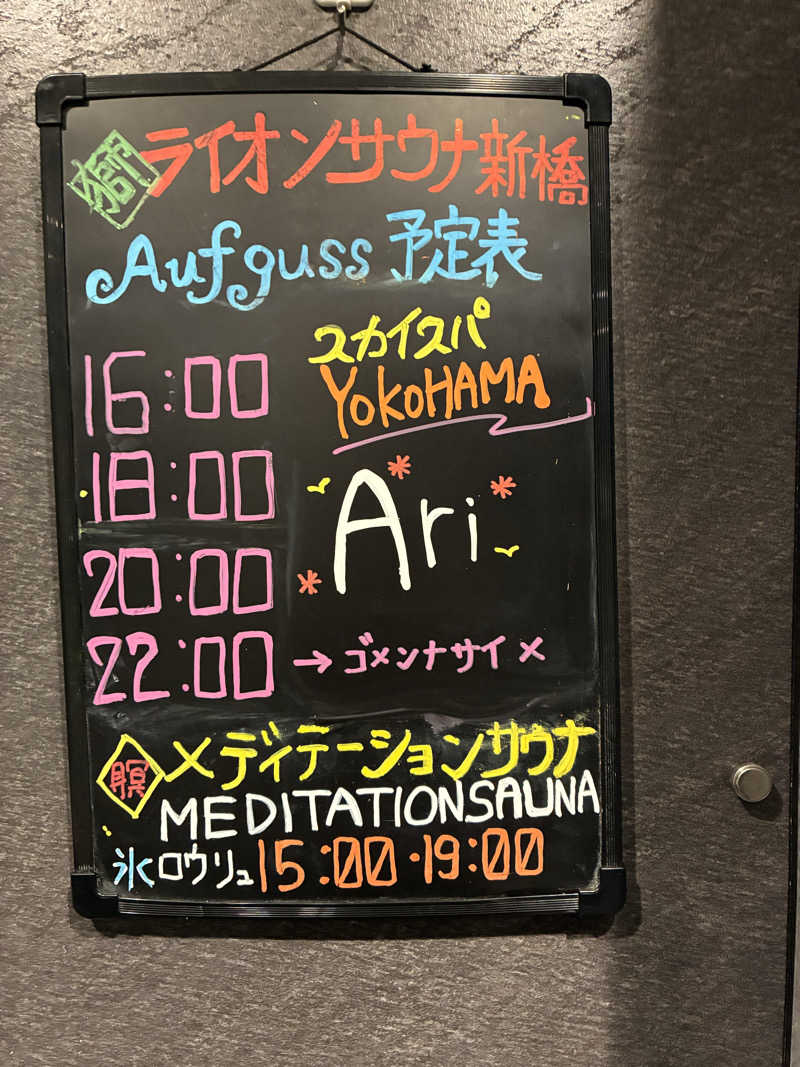 獅 ライオンサウナ新橋
Aufguss 予定表
スカイスパ
YOKOHAMA
16:00
18:00
Ari
20:00
22:00 → ゴメンナサイ メ
メディテーションサウナ
MEDITATIONSAUNA
氷ロウリュ 15:00・19:00